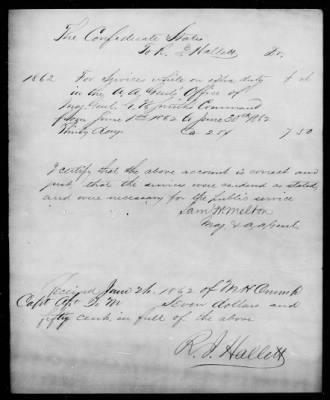 The Confederate States
To R. J. Hallett Dr.
1862 For Services while on extra duty $ ct
in the A. A. Genl's Office of
Maj Genl G. W. Smith's Command
from June 1st 1862 to June 30th 1862
Thirty days @ 25¢ 7 50
I certify that the above account is correct and
just, that the services were rendered as stated,
and were necessary for the public service
Sam W Melton
Maj & A. A. Genl.
Received June 1862 of
Capt Seven dollars and
fifty cents in full of the above
R. J. Hallett